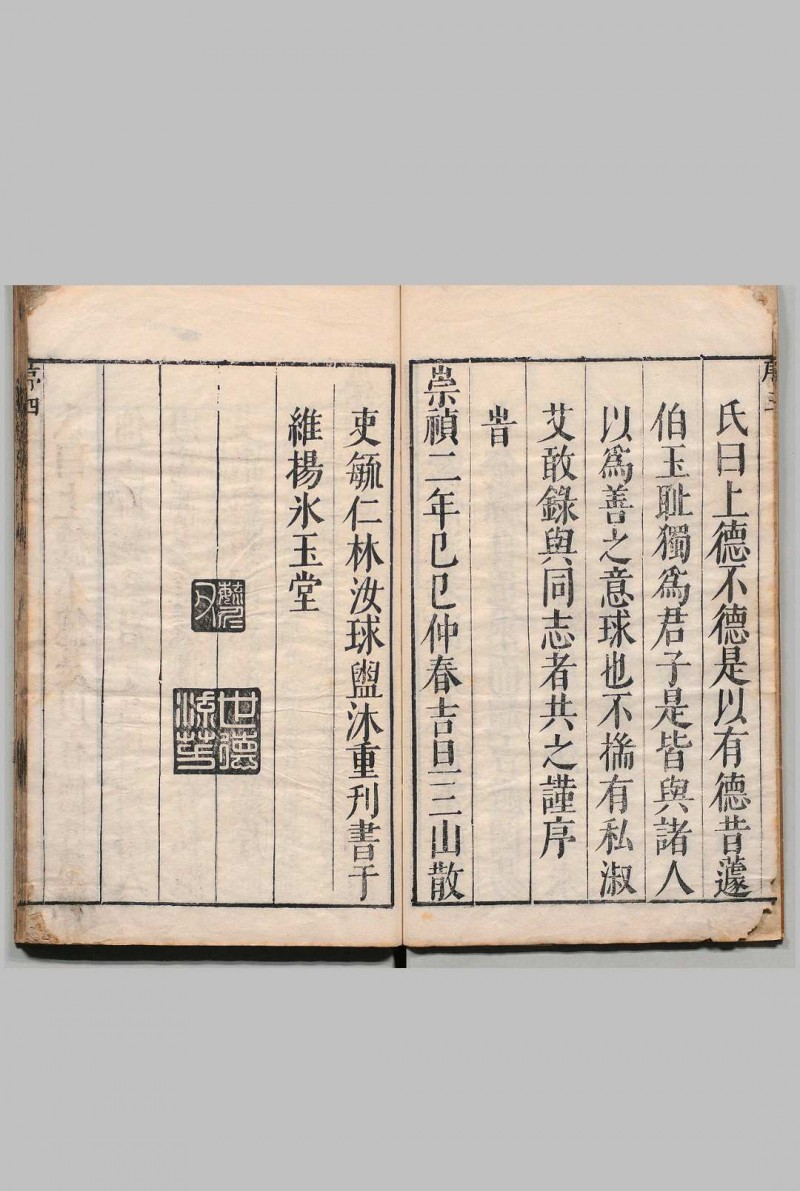 氏曰上德不德是以有德昔蘧
伯玉耻獨爲君子是皆與諸人
以爲善之意球也不揣有私淑
艾敢錄與同志者共之謹序
旹
崇禎二年己巳仲春吉旦三山散
吏毓仁林汝球盥沐重刊書于
維楊氷玉堂
世德
序四